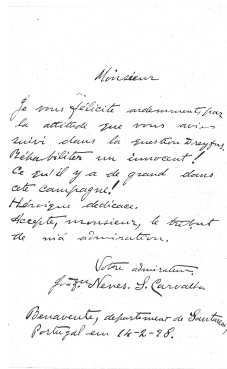 Monsieur
Je vous félicite ardemments, par
la attitude que vous avies
suivi dans la question Dreyfus.
Réhabiliter un innocent!
Ce qu'il y a de grand dans
cete campagne!
Héroique dédicace.
Accepte, monsieur, le tribut
de m'a admiration.
Votre admirateur,
Neves, S. Carvalho
Benavente, departement de Santarem,
Portugal em 14-2-98.